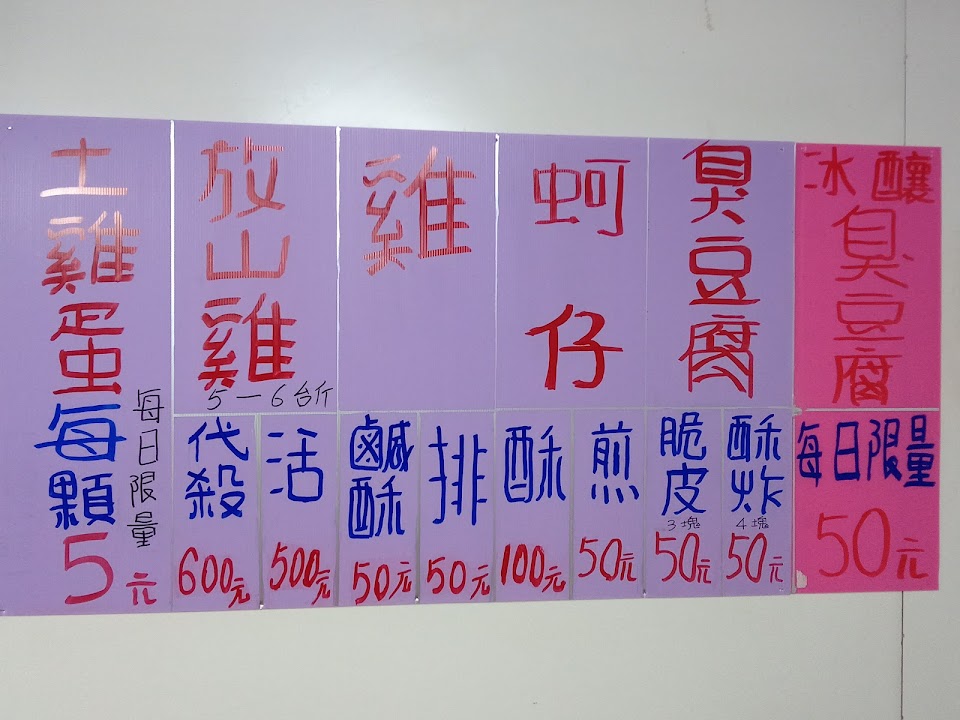 土雞蛋
每顆
5元
每日限量
放山雞
5－6台斤
代殺
600元
活
500元
雞
鹹酥
50元
排
50元
蚵仔
酥
100元
煎
50元
臭豆腐
脆皮
3塊
50元
酥炸
4塊
50元
冰釀
臭豆腐
每日限量
50元